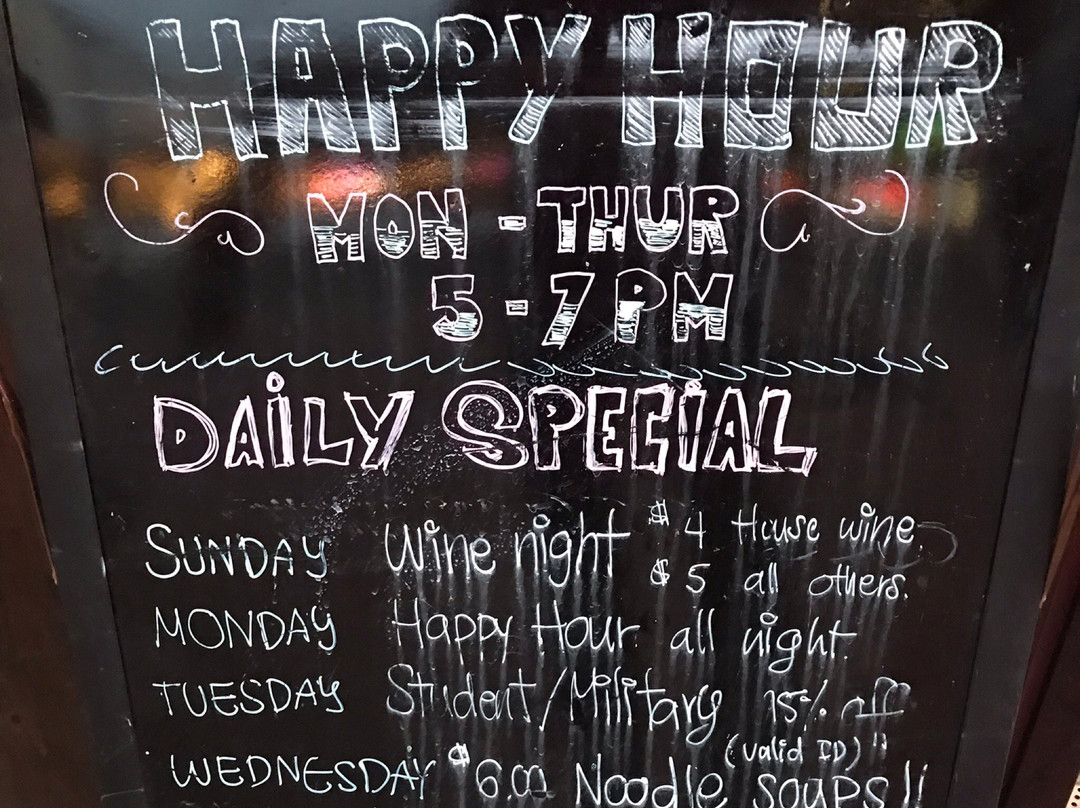 HAPPY HOUR
MON - THUR
5 - 7 PM
DAILY SPECIAL
SUNDAY Wine night $ 4 House wine.
$ 5 all others.
MONDAY Happy Hour all night.
TUESDAY Student/Military 15% off
(valid ID)"
WEDNESDAY $6.00 Noodle soups!!